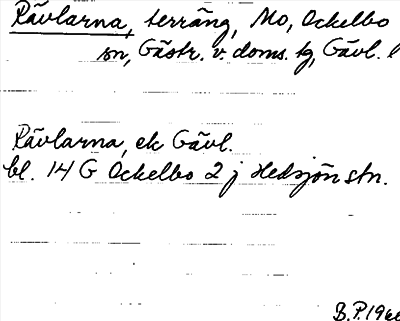 Rävlarna, terräng, Mo, Ockelbo
sn, Gästr. v. doms. tg, Gävl. l
Rävlarna, ek Gävl.
bl. 14 G Ockelbo 2 j Hedsjön stn.
B.P. 196